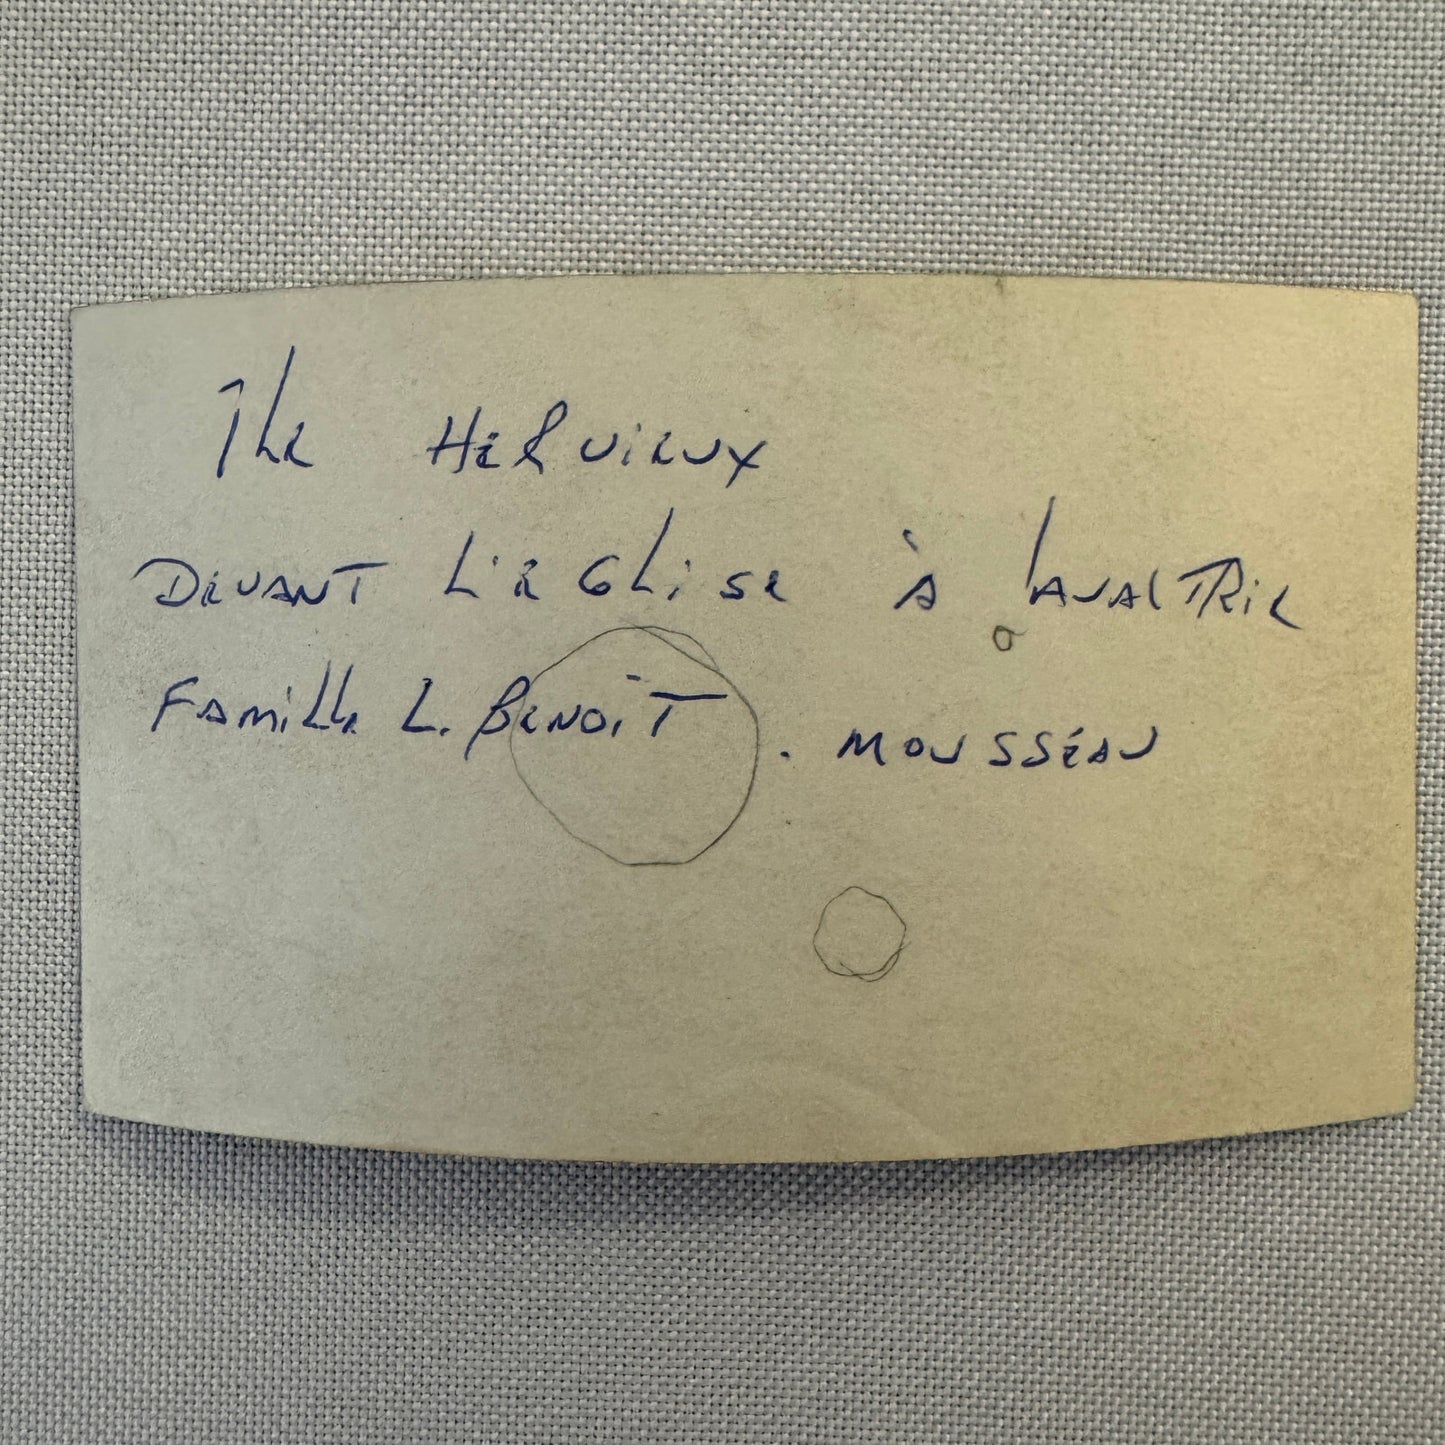 Ile HERVIEUX
DEVANT L'EGLISE à LAVALTRIE
FAMILLE L. BENOîT. MOUSSéAU